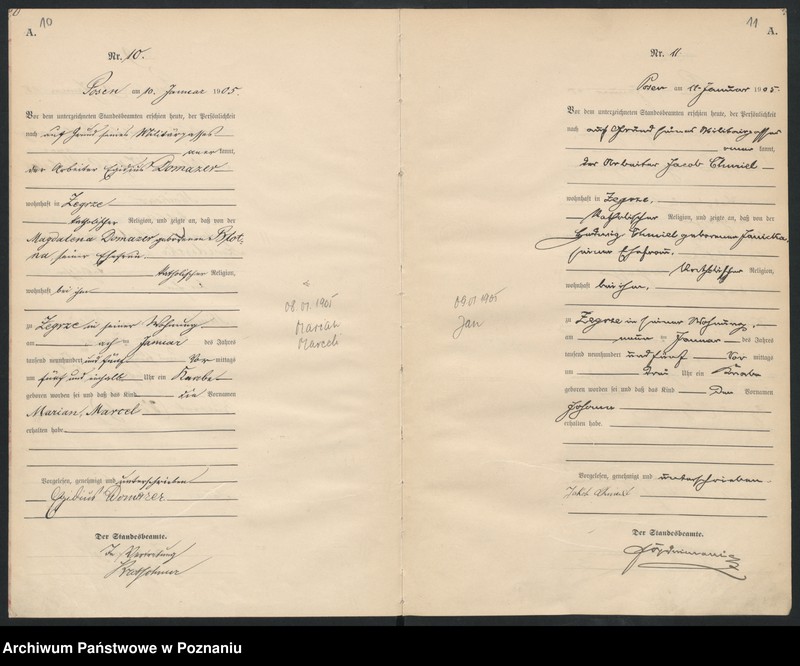 10
A.
Nr. 10.
Posen am 10. Januar 1905.
Vor dem unterzeichneten Standesbeamten erschien heute, der Persönlichkeit
nach auf Grund seines Militärpasses
anerkannt,
der Arbeiter Egidius Domazer
wohnhaft in Zegrze
katholischer Religion, und zeigte an, daß von der
Magdalena Domazer geborenen
seiner Ehefrau
katholischer Religion,
wohnhaft bei ihm
zu Zegrze in seiner Wohnung
am acht ten Januar des Jahres
tausend neunhundert und fünf Vor mittags
um fünf und einhalb Uhr ein Knabe
geboren worden sei und daß das Kind die Vornamen
Marian, Marcel
erhalten habe
Vorgelesen, genehmigt und unterschrieben
Egidius Domazer
Der Standesbeamte.
In Vertretung
08.01.1905
Marian
Marceli
11
A.
Nr. 11
Posen am 11. Januar 1905
Vor dem unterzeichneten Standesbeamten erschien heute, der Persönlichkeit
nach auf Grund seines Militairpasses
kannt,
der Arbeiter Jacob Chmiel
wohnhaft in Zegrze.
katholischer Religion, und zeigte an, daß von der
Hedwig Chmiel geborene
seiner Ehefrau.
katholischer Religion,
wohnhaft bei ihm.
zu Zegrze in seiner Wohnung,
am neun ten Januar des Jahres
tausend neunhundert und fünf Vor mittags
um drei Uhr ein Knabe
geboren worden sei und daß das Kind den Vornamen
Johann
erhalten habe.
Vorgelesen, genehmigt und unterschrieben.
Jakob Chmiel
Der Standesbeamte.
09.01.1905
Jan
Archiwum Państwowe w Poznaniu